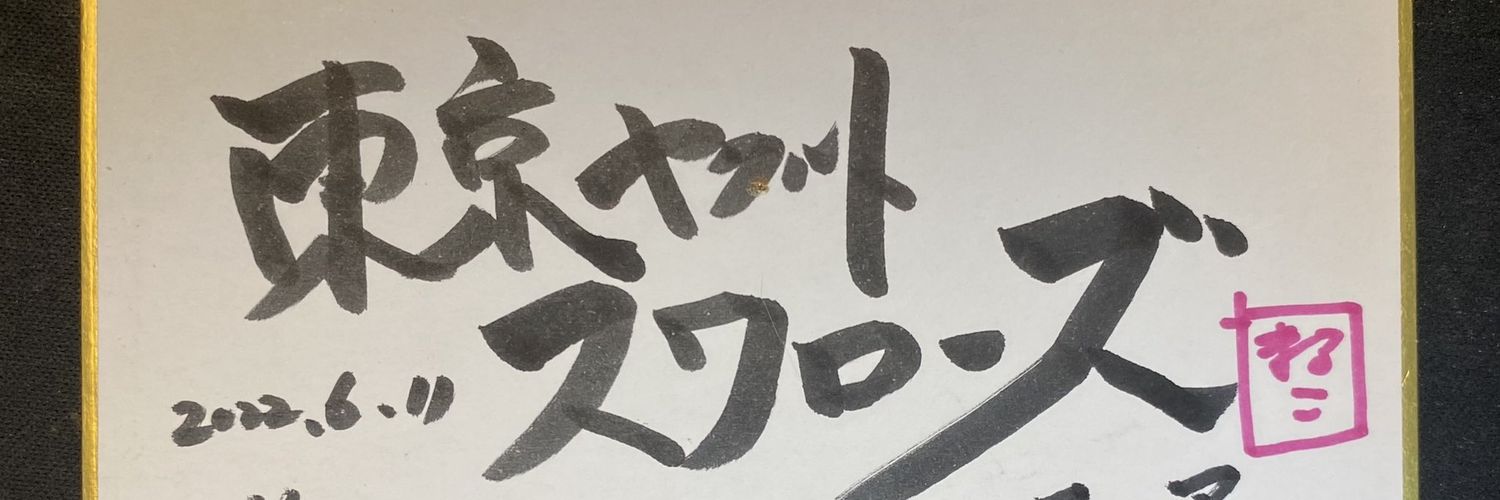 東京ヤクルト
スワローズ
2022.6.11
ねこ